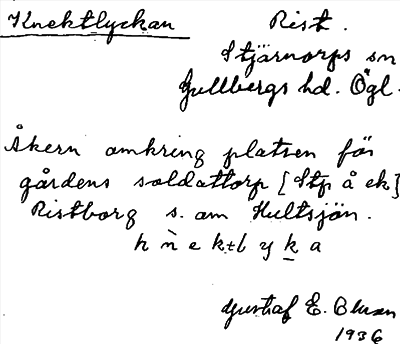 Knektlyckan Rist.
Stjärnorps sn
Gullbergs hd. Ögl.
Åkern omkring platsen för
gårdens soldattorp [Stp å ek]
Ristborg s. om Hultsjön.
Gustaf E.
1936